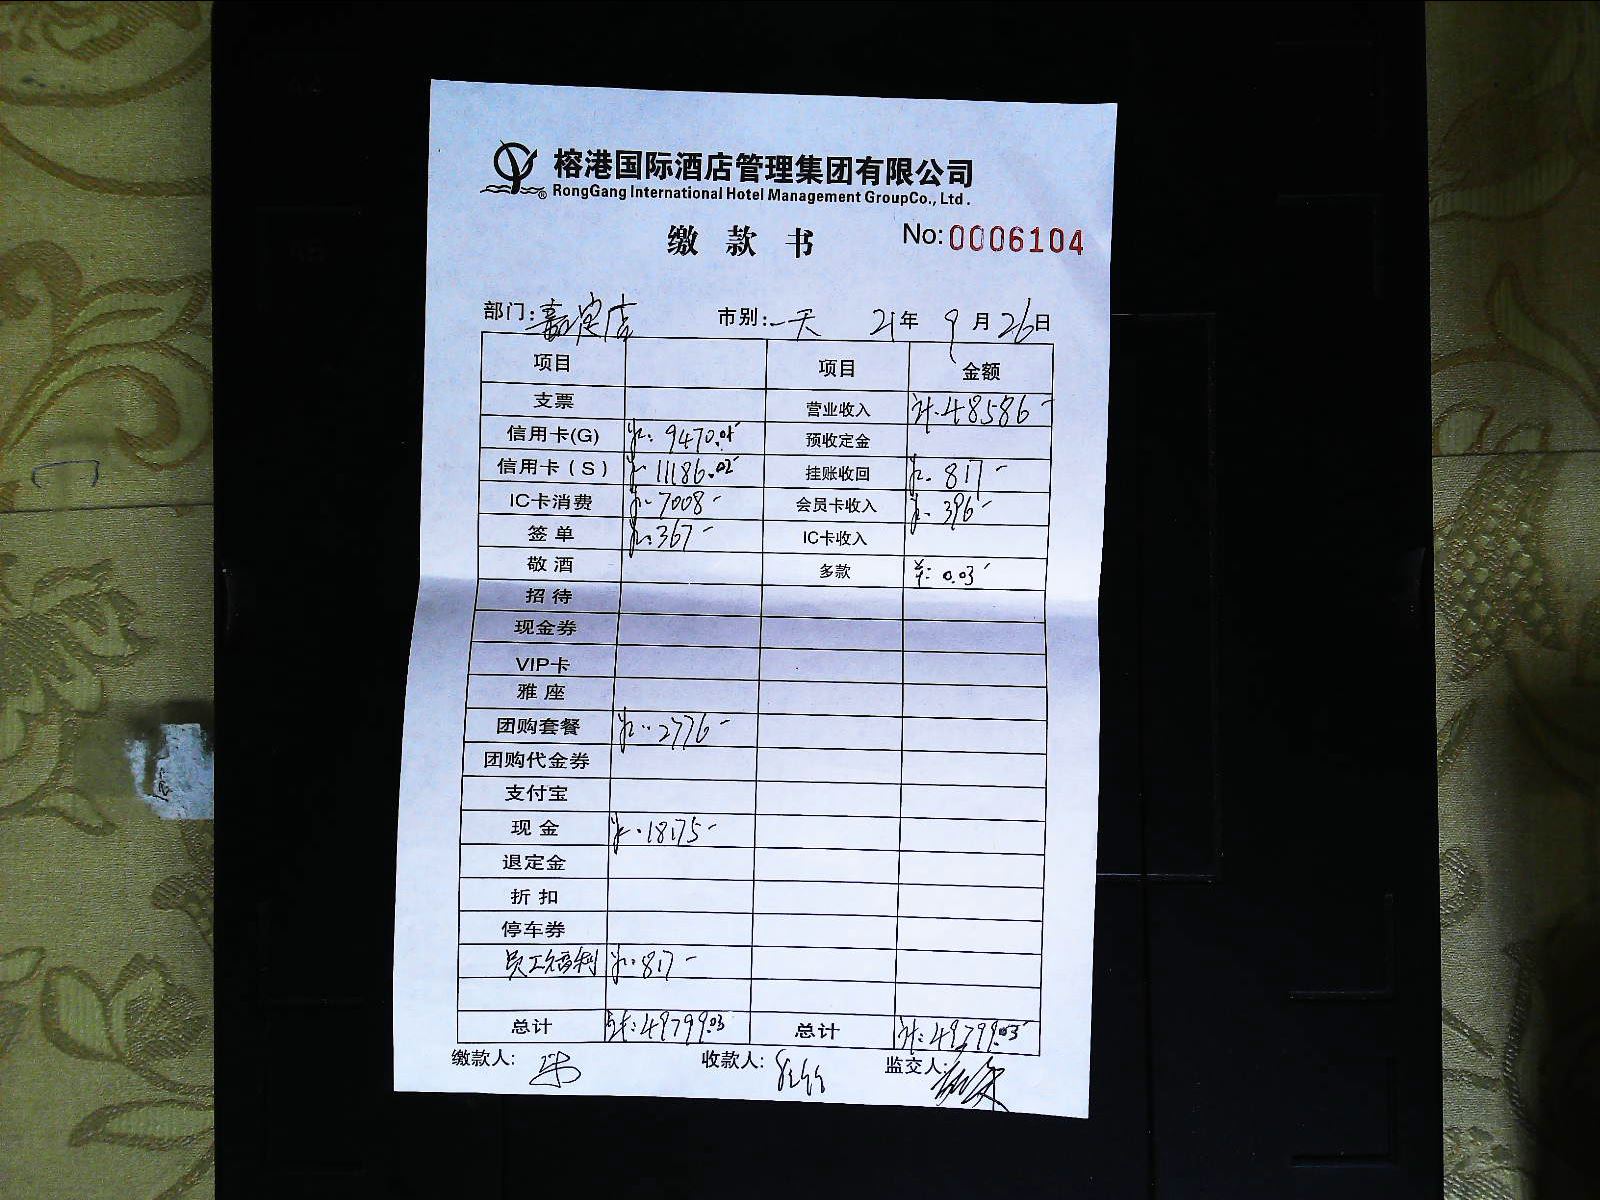 榕港国际酒店管理集团有限公司
RongGang International Hotel Management GroupCo., Ltd.
缴款书 No:0006104
部门:嘉定店 市别:一天 21年 9月26日
项目 项目 金额
支票 营业收入 计:48586-
信用卡(G) ¥:9470.01 预收定金
信用卡(S) ¥:11186.02 挂账收回 ¥:817-
IC卡消费 ¥:7008- 会员卡收入 ¥:396-
签单 ¥:367- IC卡收入
敬酒 多款 ¥:0.03
招待
现金券
VIP卡
雅座
团购套餐 ¥:2776-
团购代金券
支付宝
现金 ¥:18175-
退定金
折扣
停车券
员工福利 ¥:817-
总计 计:49799.03 总计 计:49799.03
缴款人: 收款人: 监交人: